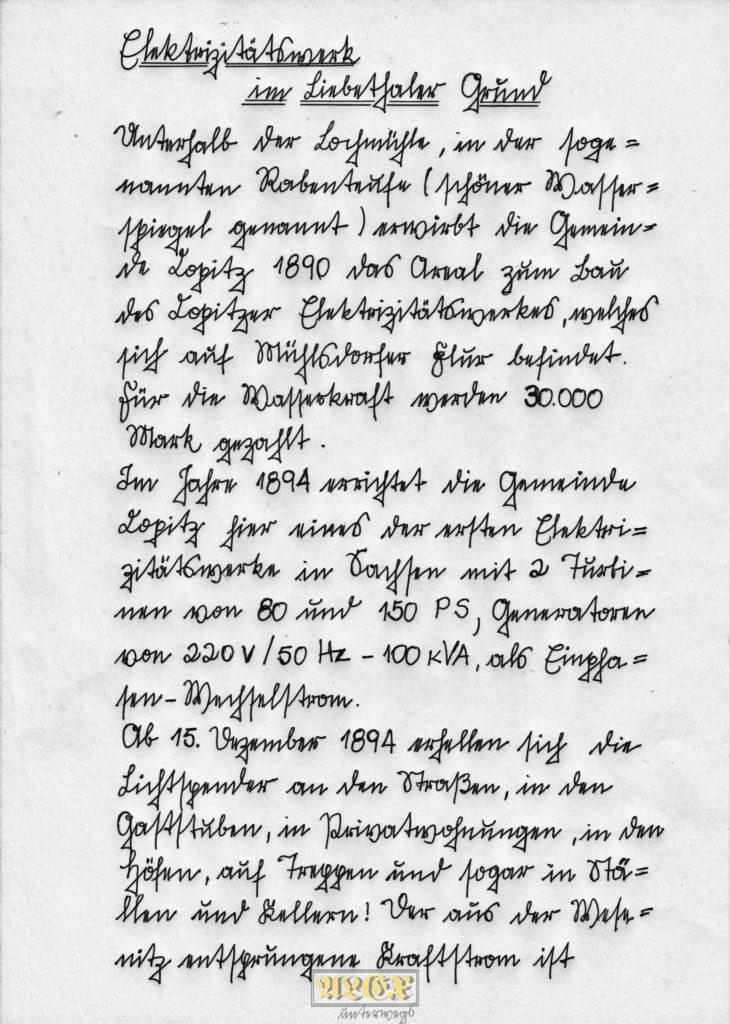 Elektrizitätswerk
im Liebethaler Grund
Unterhalb der Lochmühle, in der soge=
nannten Rabenteufe (schöner Wasser=
spiegel genannt) erwirbt die Gemein=
de Lopitz 1890 das Areal zum Bau
des Lopitzer Elektrizitätswerkes, welches
sich auf Mühlsdorfer Flur befindet.
Für die Wasserkraft werden 30.000
Mark gezahlt.
Im Jahre 1894 errichtet die Gemeinde
Lopitz hier eines der ersten Elektri=
zitätswerke in Sachsen mit 2 Turbi=
nen von 80 und 150 PS, Generatoren
von 220 V/50 Hz - 100 KVA, als Einpha=
sen-Wechselstrom.
Ab 15. Dezember 1894 erhellen sich die
Lichtspender an den Straßen, in den
Gaststuben, in Privatwohnungen, in den
Höfen, auf Treppen und sogar in Stä=
llen und Kellern! Der aus der Wese=
nitz entsprungene Kraftstrom ist
ALEX
unterwegs